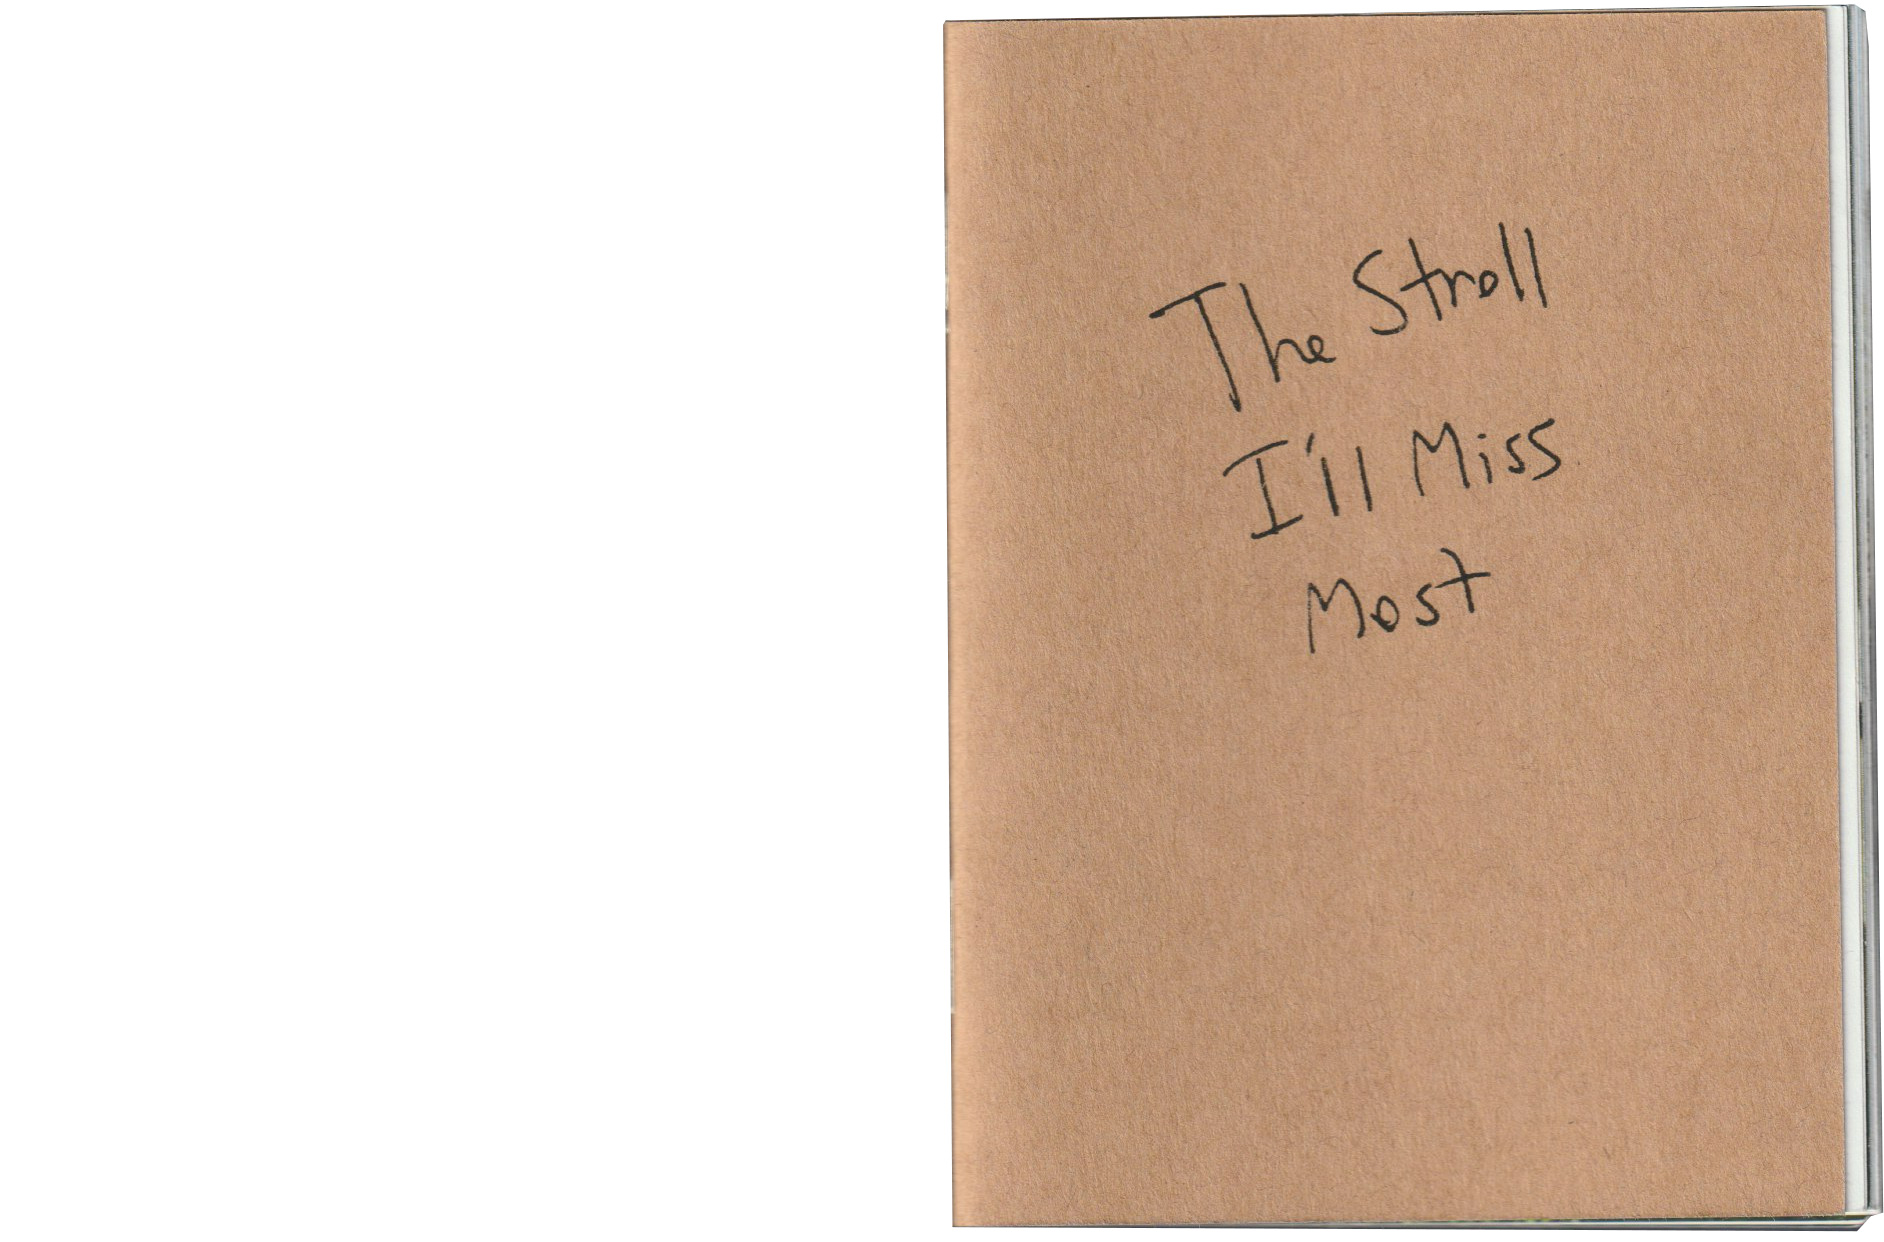 The Stroll
I'll Miss
Most